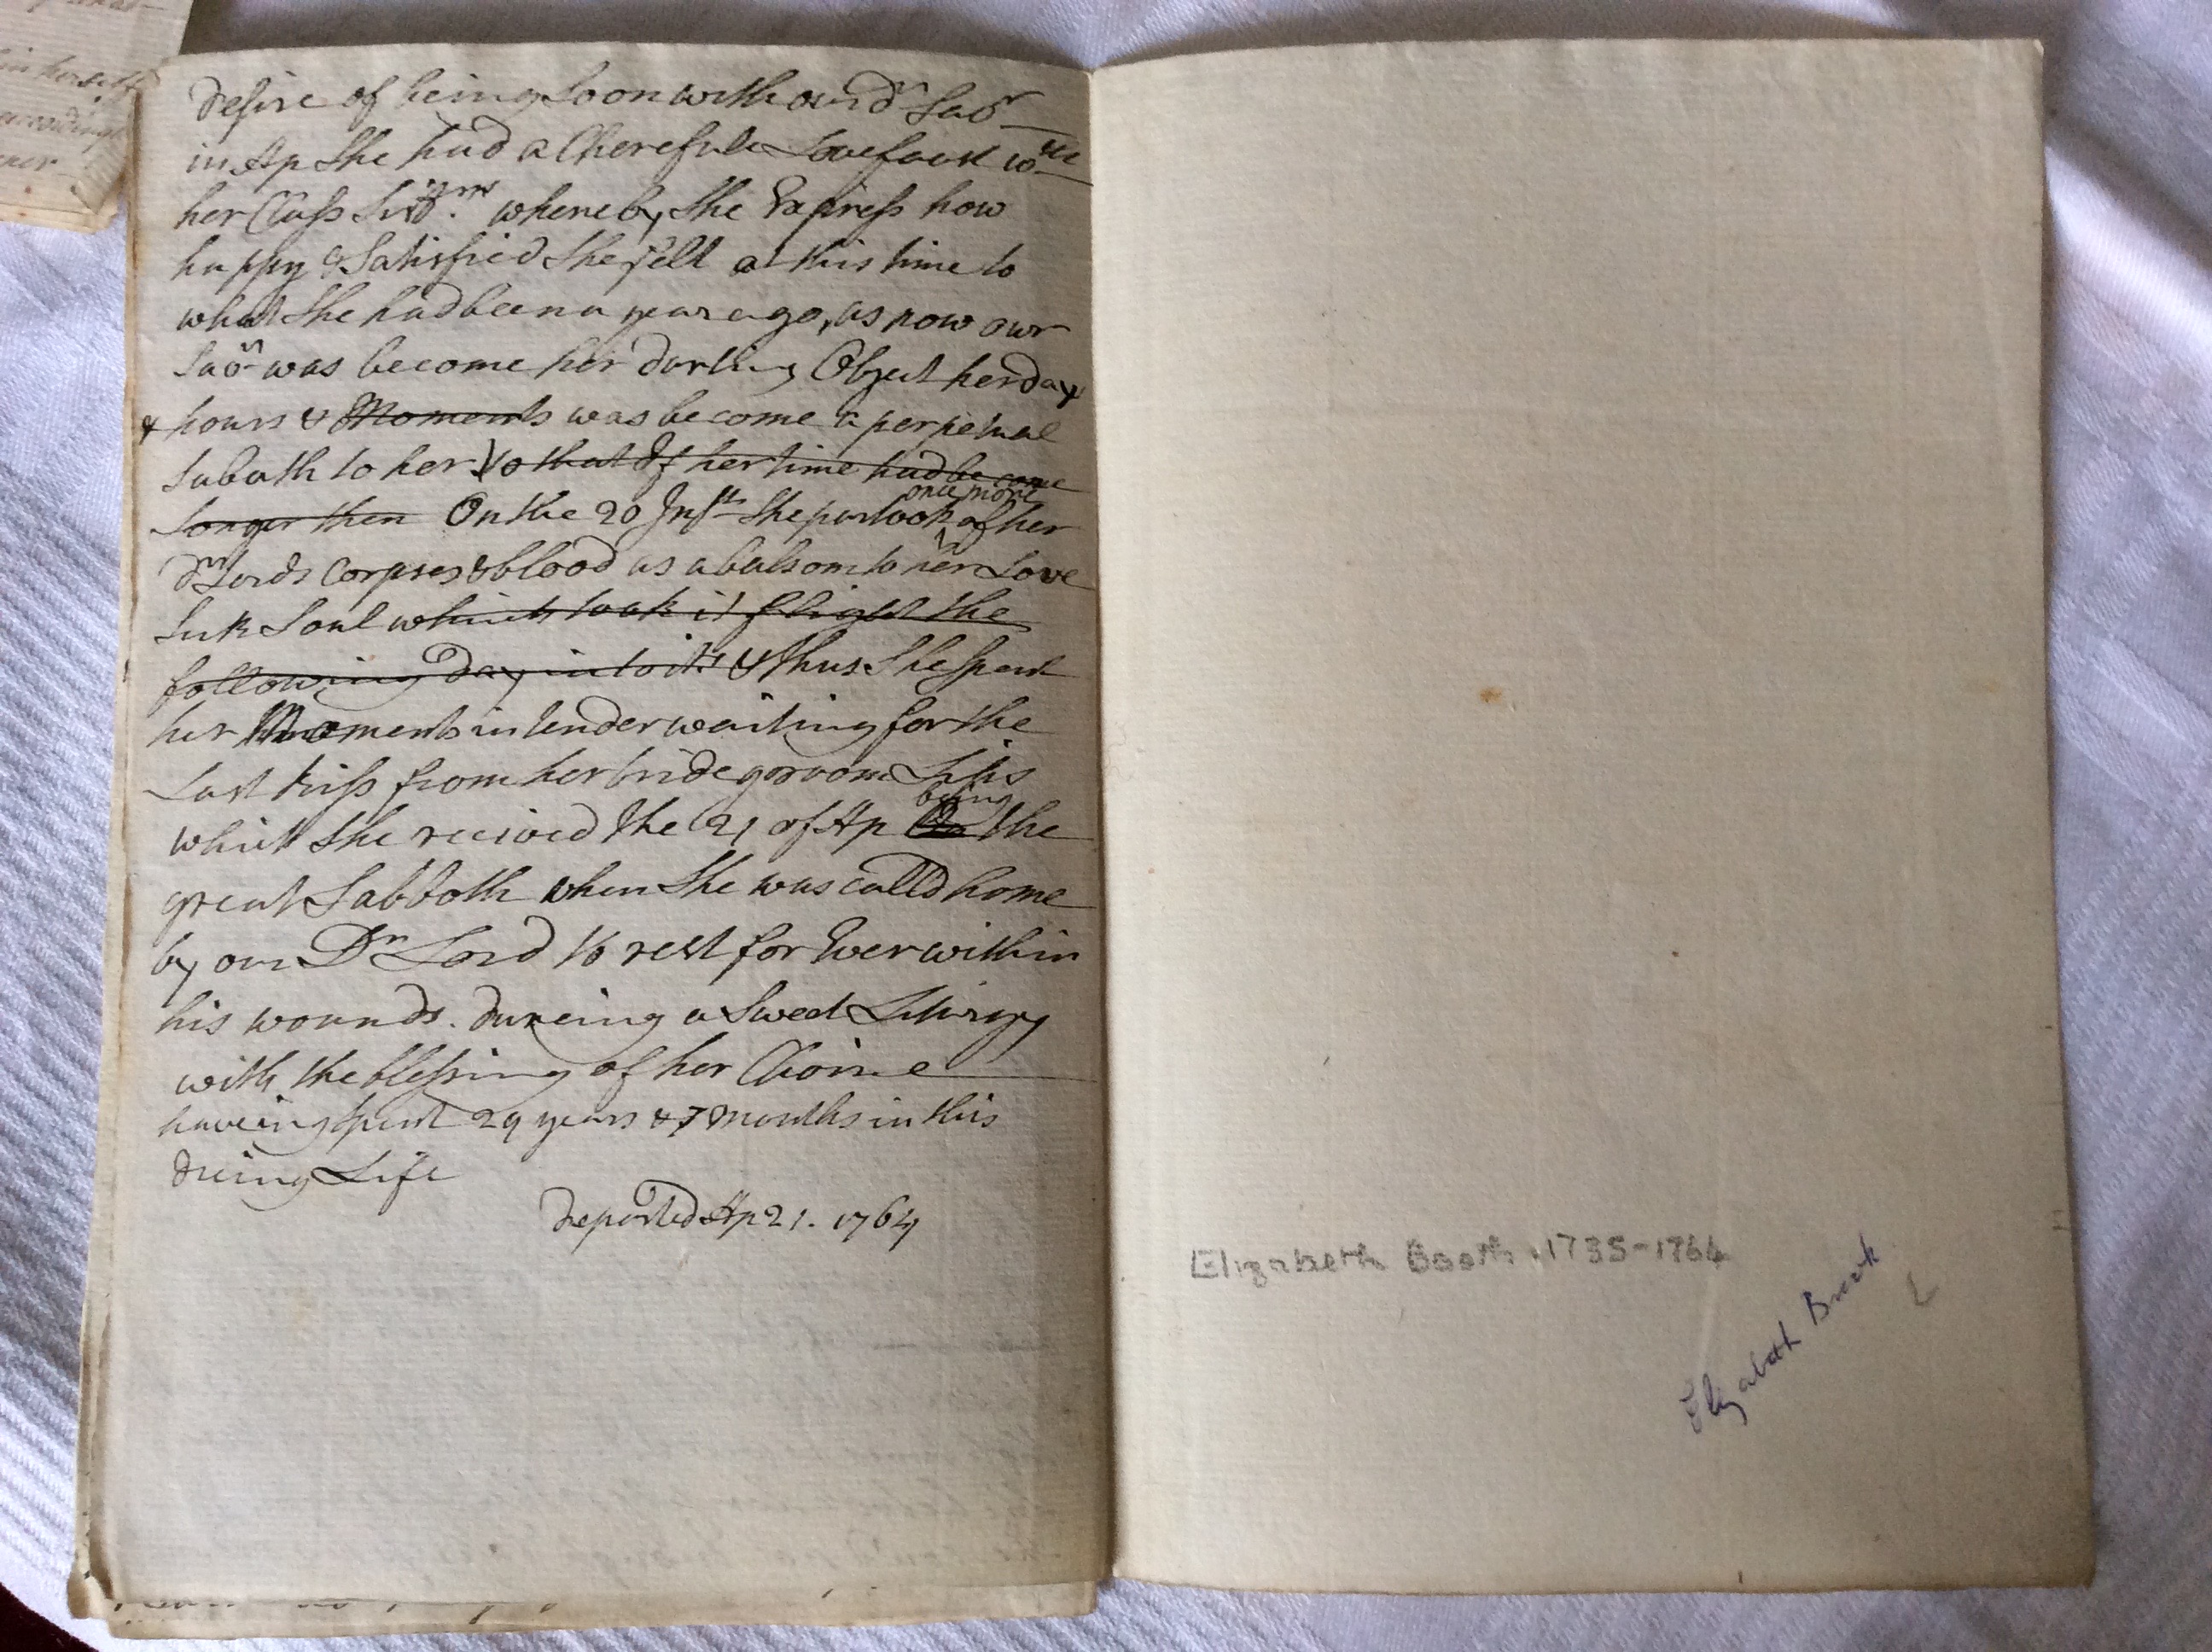 desire of being Soon with our dr Savr
in Ap She had a Cherefule Lovefeast wth
her Class whereby She Express how
happy & Satisfied She felt at this time to
what She had been a year ago, as now our
Savr was become her darling Object her day
& hours & Moments was become a perpetual
Sabath to her So that If her time had be come
Longer then On the 20 Inst She partook once more of her
dr Lords Corpses & blood as a balsom to her Love
Sick Soul which took it flight the
following Day in to its & thus She Spent
her Moments in tender waiting for the
Last kiss from her bridegroom Lips
which She recived the 21 of Ap being the
great Sabboth when She was calld home
by our Dr Lord to rest for Ever within
his wounds. dureing a Sweet Liturgy
with the blessing of her Choire
haveing Spent 29 years & 7 Months in this
dieing Life
departed Ap 21. 1764
Elizabeth Booth 1735-1764
Elizabeth Brook